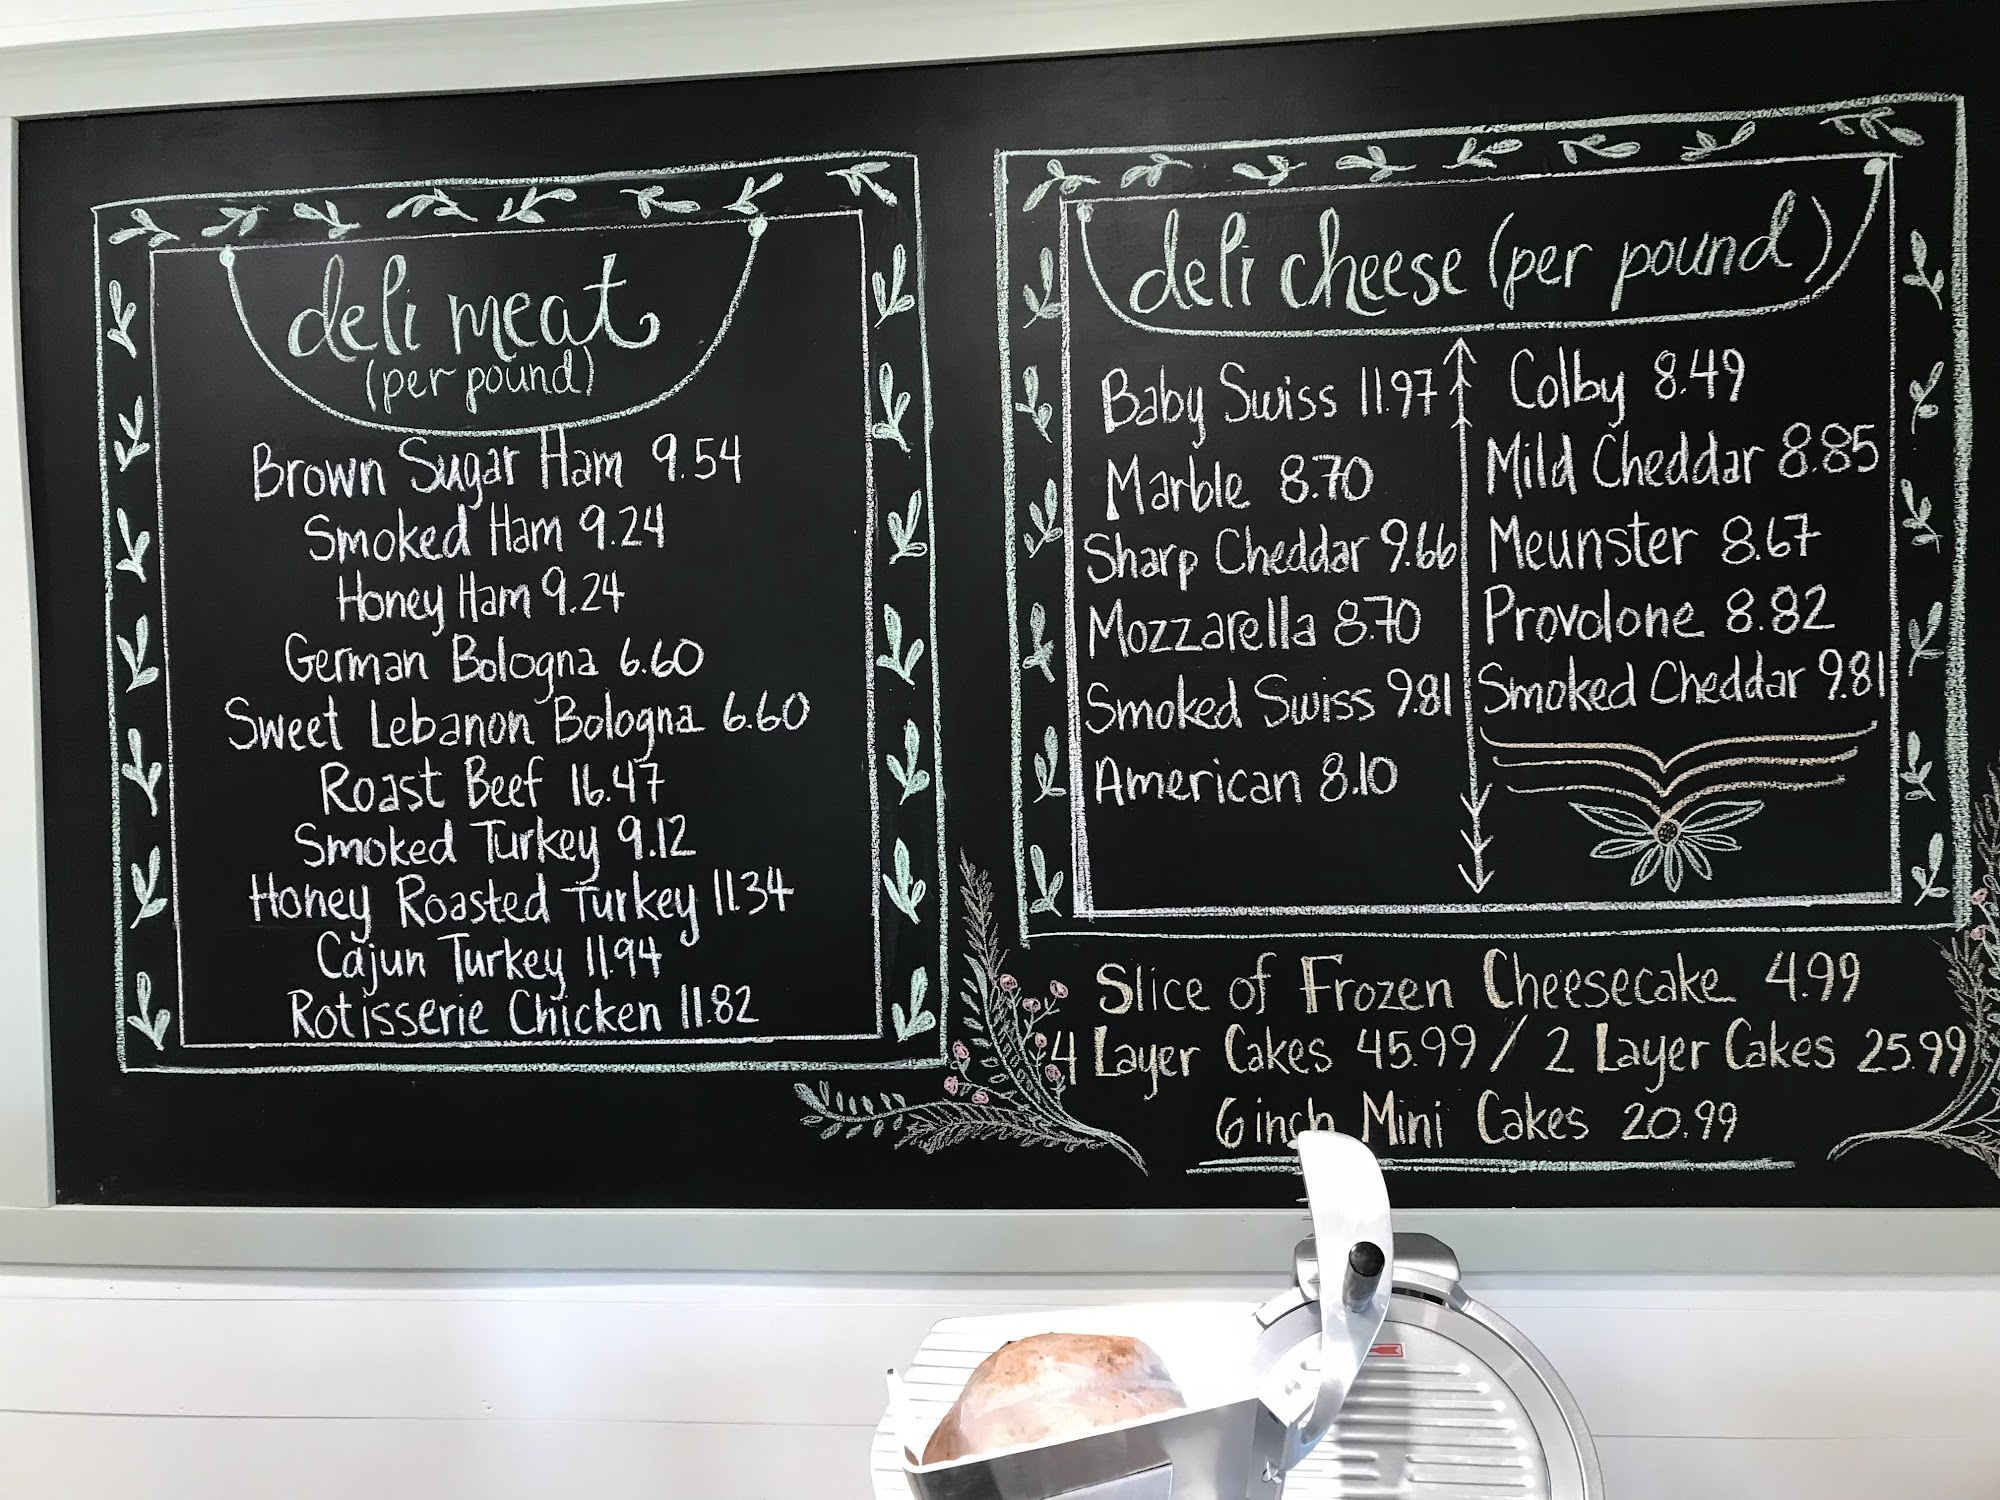 deli meat
(per pound)
Brown Sugar Ham 9.54
Smoked Ham 9.24
Honey Ham 9.24
German Bologna 6.60
Sweet Lebanon Bologna 6.60
Roast Beef 16.47
Smoked Turkey 9.12
Honey Roasted Turkey 11.34
Cajun Turkey 11.94
Rotisserie Chicken 11.82
deli cheese (per pound)
Baby Swiss 11.97
Marble 8.70
Sharp Cheddar 9.66
Mozzarella 8.70
Smoked Swiss 9.81
American 8.10
Colby 8.49
Mild Cheddar 8.85
Meunster 8.67
Provolone 8.82
Smoked Cheddar 9.81
Slice of Frozen Cheesecake 4.99
4 Layer Cakes 45.99 / 2 Layer Cakes 25.99
6 inch Mini Cakes 20.99